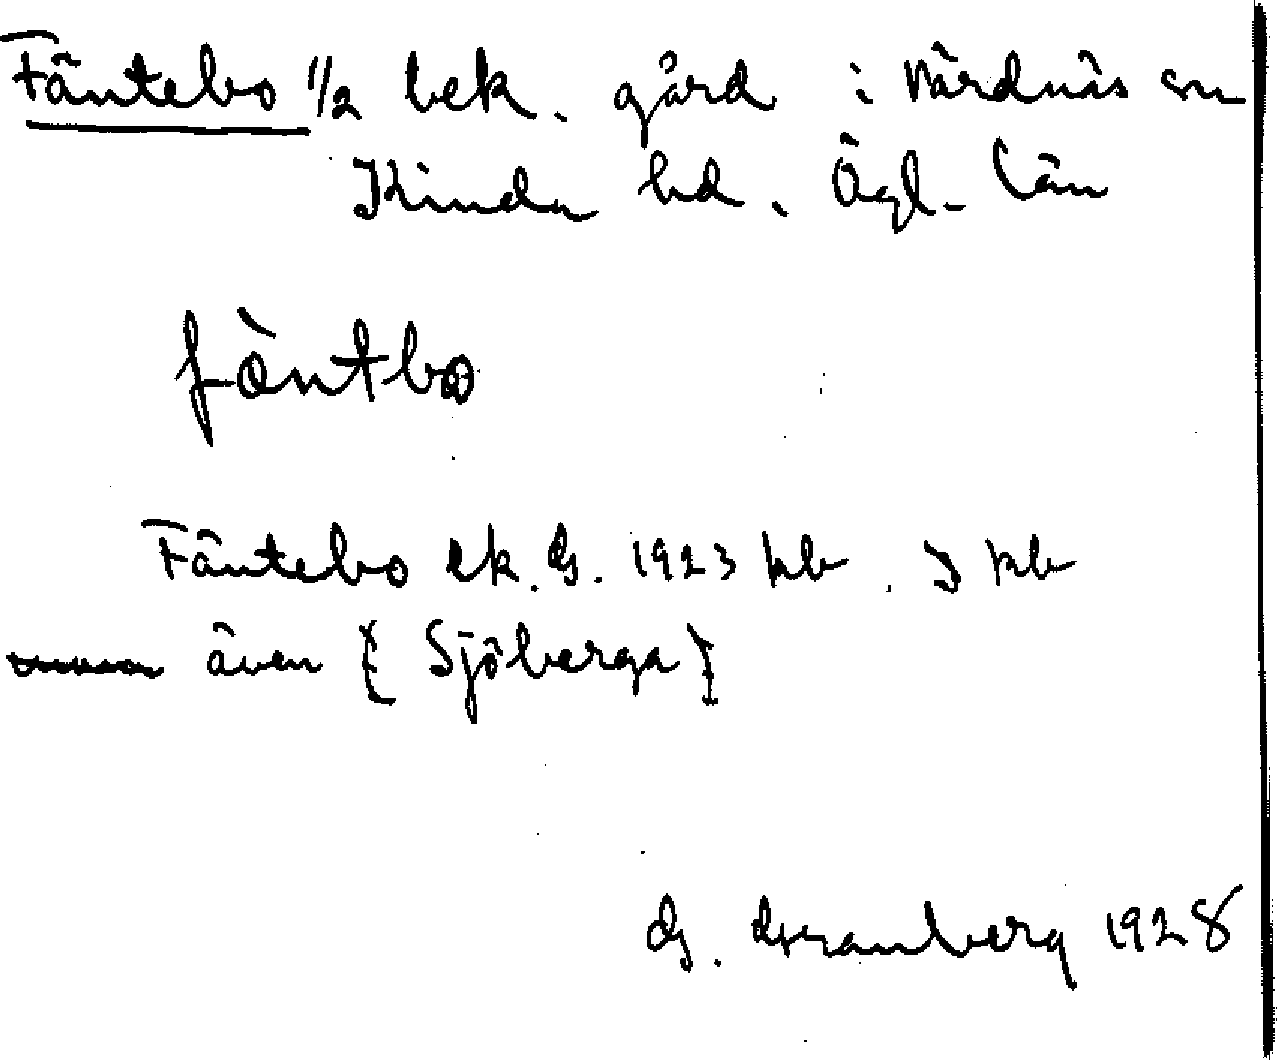 Fäntebo 1/2 bek. gård i Vårdnäs sn
Kinda hd. Ögl. län
fàntbo
Fäntebo ek. G. 1923 kb. J kb
även [Sjöberga]
G. Granberg 1928